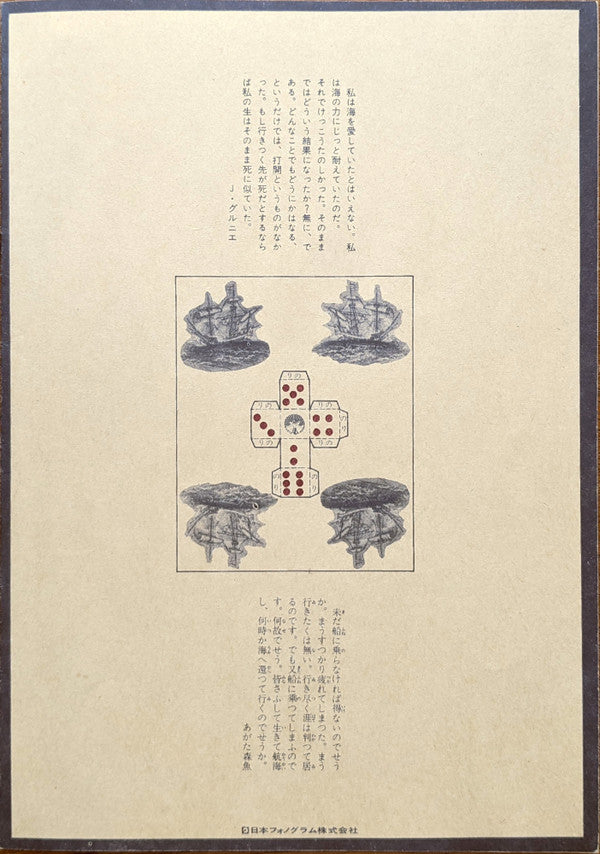 私は海を愛していたとはいえない。私
は海の力にじっと耐えていたのだ。
それでけっこうたのしかった。そのまま
ではどういう結果になったか?無に、で
ある。どんなことでもどうにかはなる、
というだけでは、打開というものがなか
った。もし行きつく先が死だとするなら
ば私の生はそのまま死に似ていた。
J・グルニエ
のり
のり
のり
のり
のり
のり
のり
未だ船に乗らなければ得ないのでせう
か。まうすつかり疲れてしまつた。まう
行きたくは無い。行き尽く涯は判つて居
るのです。でも又船に乗つてしまふので
す。何故でせう。皆さふして生きて航海
し、何時か海へ還つて行くのでせうか。
あがた森魚
日本フォノグラム株式会社